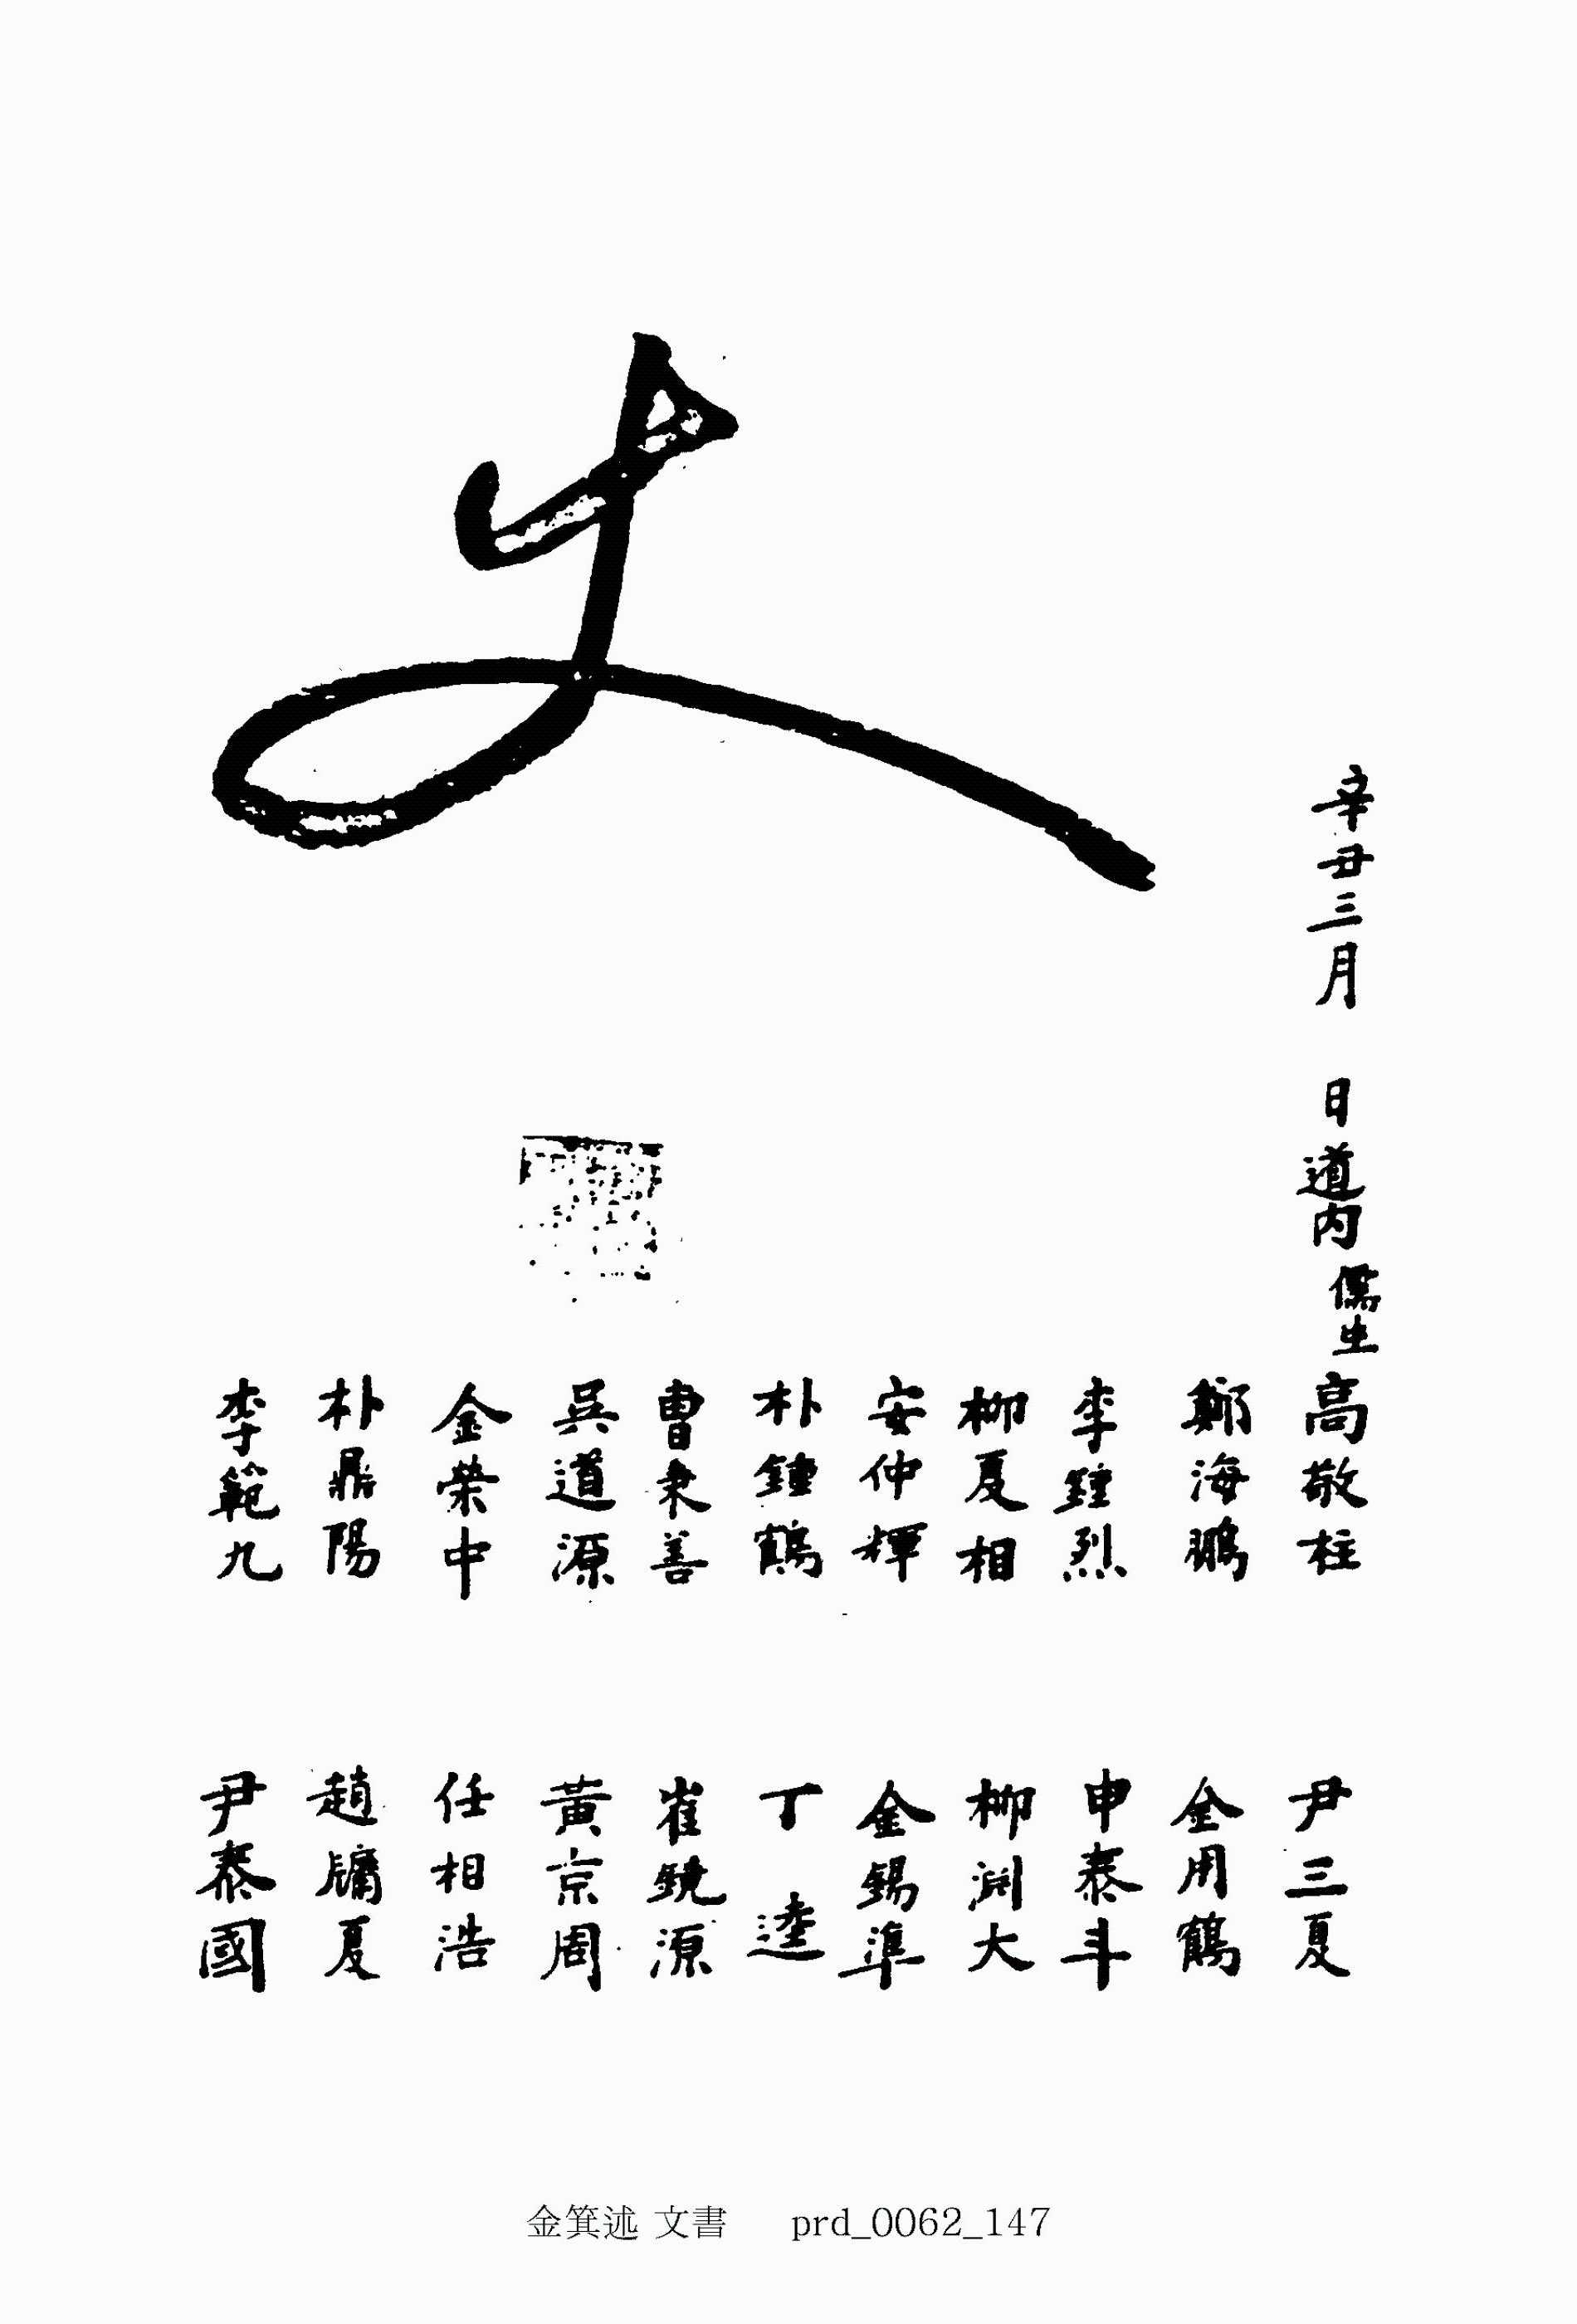 辛丑三月 日道内儒生高敬柱 尹三夏
鄭海鵬 金用鶴
李鍾烈 申泰斗
柳夏相 柳淵大
安仲輝 金錫準
朴鍾鶴 丁逵
曺秉善 崔鏡源
吳道源 黃京周
金榮中 任相浩
朴鼎陽 趙牗夏
李範九 尹泰國
金箕述 文書 prd_0062_147